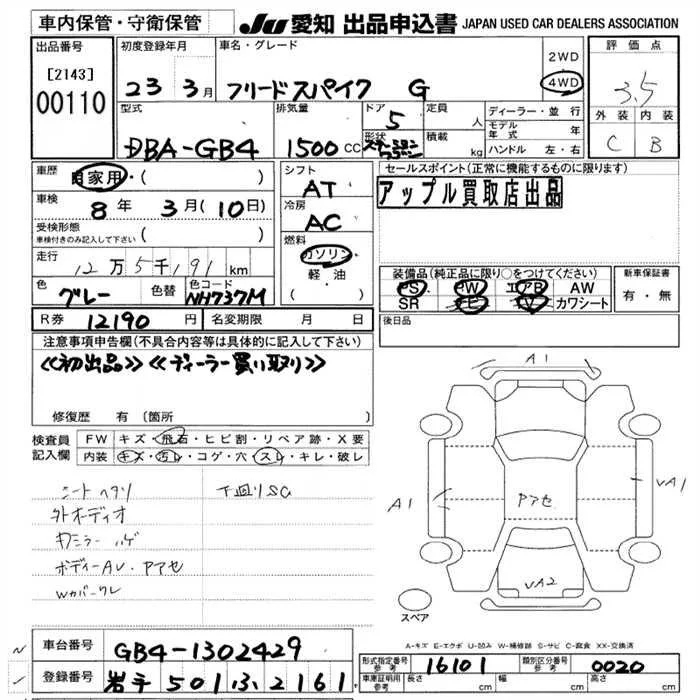 車内保管・守衛保管 JU 愛知 出品申込書 JAPAN USED CAR DEALERS ASSOCIATION
出品番号 [2143] 00110
初度登録年月 23 3月
車名・グレード フリードスパイク G
2WD
4WD
評価点 3.5
外装 内装
C B
型式 DBA-GB4
排気量 1500 CC
ドア 5
形状
定員 人
積載 kg
ディーラー・並行
モデル年式 年
ハンドル 左・右
車歴 自家用・( )
車検 8年 3月(10日)
受検形態 ( )
車検付きのみ記入して下さい
走行 12万5千191 km
色 グレー 色替 色コード NH737M
シフト AT
冷房 AC
燃料 ガソリン
軽・油
( )
セールスポイント(正常に機能するものに限ります)
アップル買取店出品
装備品(純正品に限り○をつけてください)
PS PW エアB AW
SR ナビ TV カワシート
新車保証書
有・無
R券 12190円 名変期限 月 日
後日品
注意事項申告欄(不具合内容等は具体的に記入して下さい)
<<初出品>> <<ディーラー買い取り>>
修復歴 有(箇所
検査員記入欄
FW キズ・飛石・ヒビ割・リペア跡・X要
内装 キズ・汚レ・コゲ・穴・スレ・キレ・破レ
シートヘタリ 下回りSC
外オーディオ
ハゲ
ボディーAU・アアセ
Wカバーワレ
A1
A1
アアセ
UA1
UA2
スペア
A-キズ E-エクボ U-凹み W-補修跡 S-サビ C-腐食 XX-交換済
車台番号 GB4-1302429
登録番号 岩手 501 ふ 2161
形式指定番号 参考 16101 類別区分番号 参考 0020
車庫証明用 参考 長さ cm 幅 cm 高さ cm